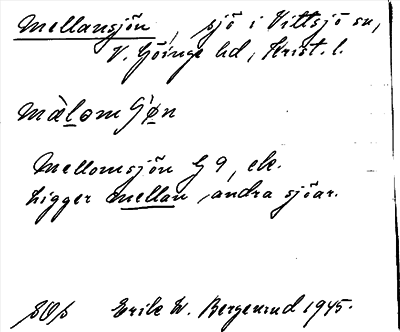 Mellansjön, sjö i Vittsjö sn,
V. Göinge hd, Krist. l.
Mellomsjön G 9, ek.
Ligger mellan andra sjöar.
Erik W. Bergenrud 1945.